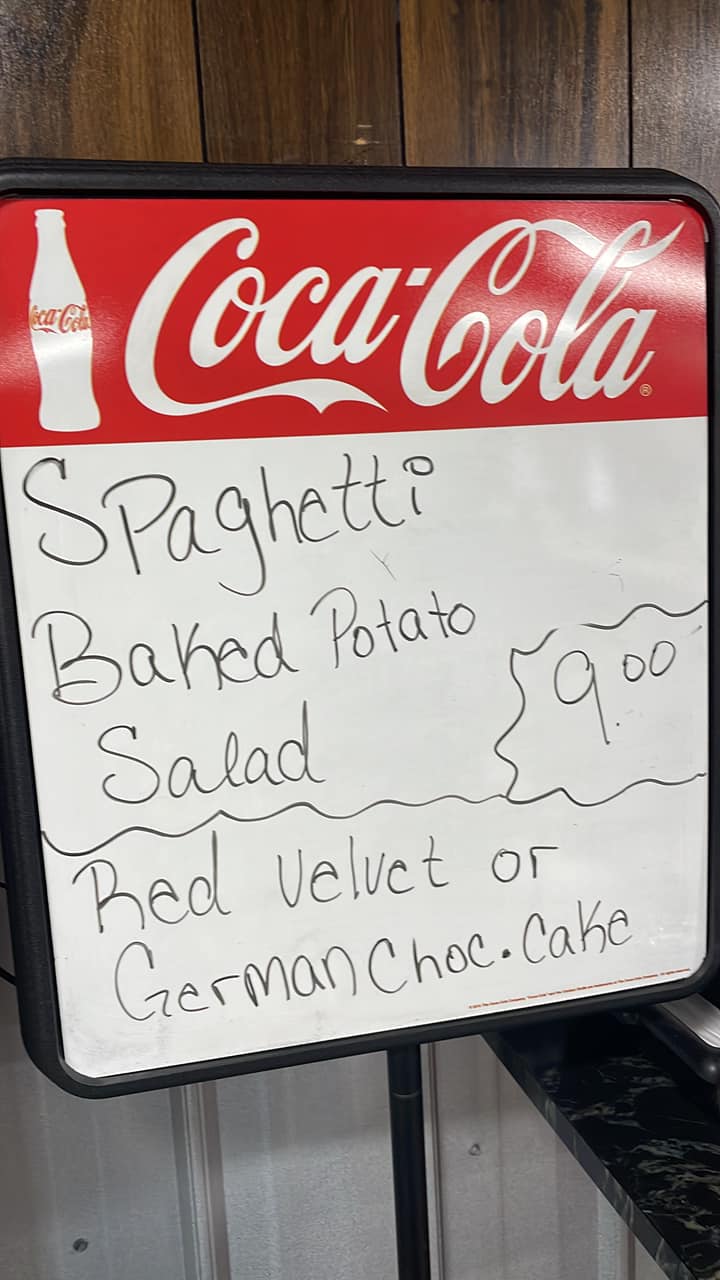 Coca-Cola
Coca-Cola®
Spaghetti
Baked Potato
Salad
9.00
Red Velvet or
German Choc. Cake